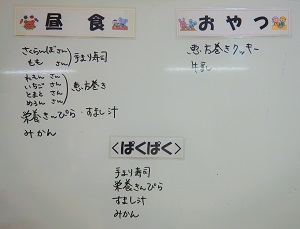 昼食
さくらんぼさん
もも さん
手まり寿司
れもん さん
いちご さん
とまと さん
めろん さん
恵方巻き
栄養きんぴら・すまし汁
みかん
おやつ
恵方巻きクッキー
牛乳
<ぱくぱく>
手まり寿司
栄養きんぴら
すまし汁
みかん